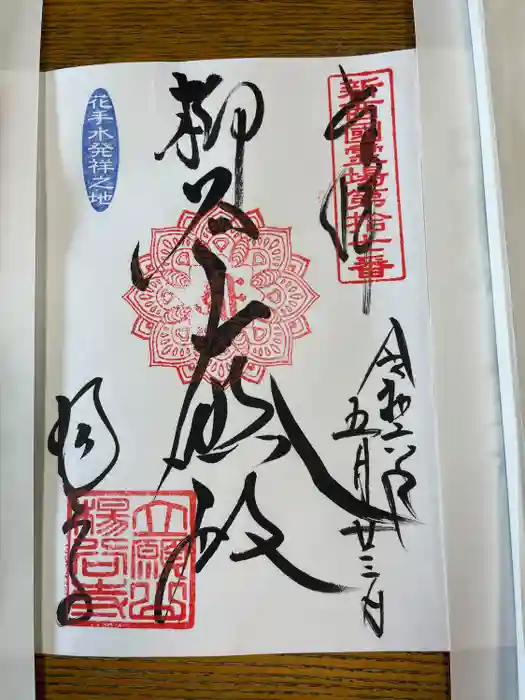 奉拝
新西國霊場第拾七番
令和六年
五月廿三日
柳谷大悲殿
花手水発祥之地
楊谷寺
立願山
楊谷寺